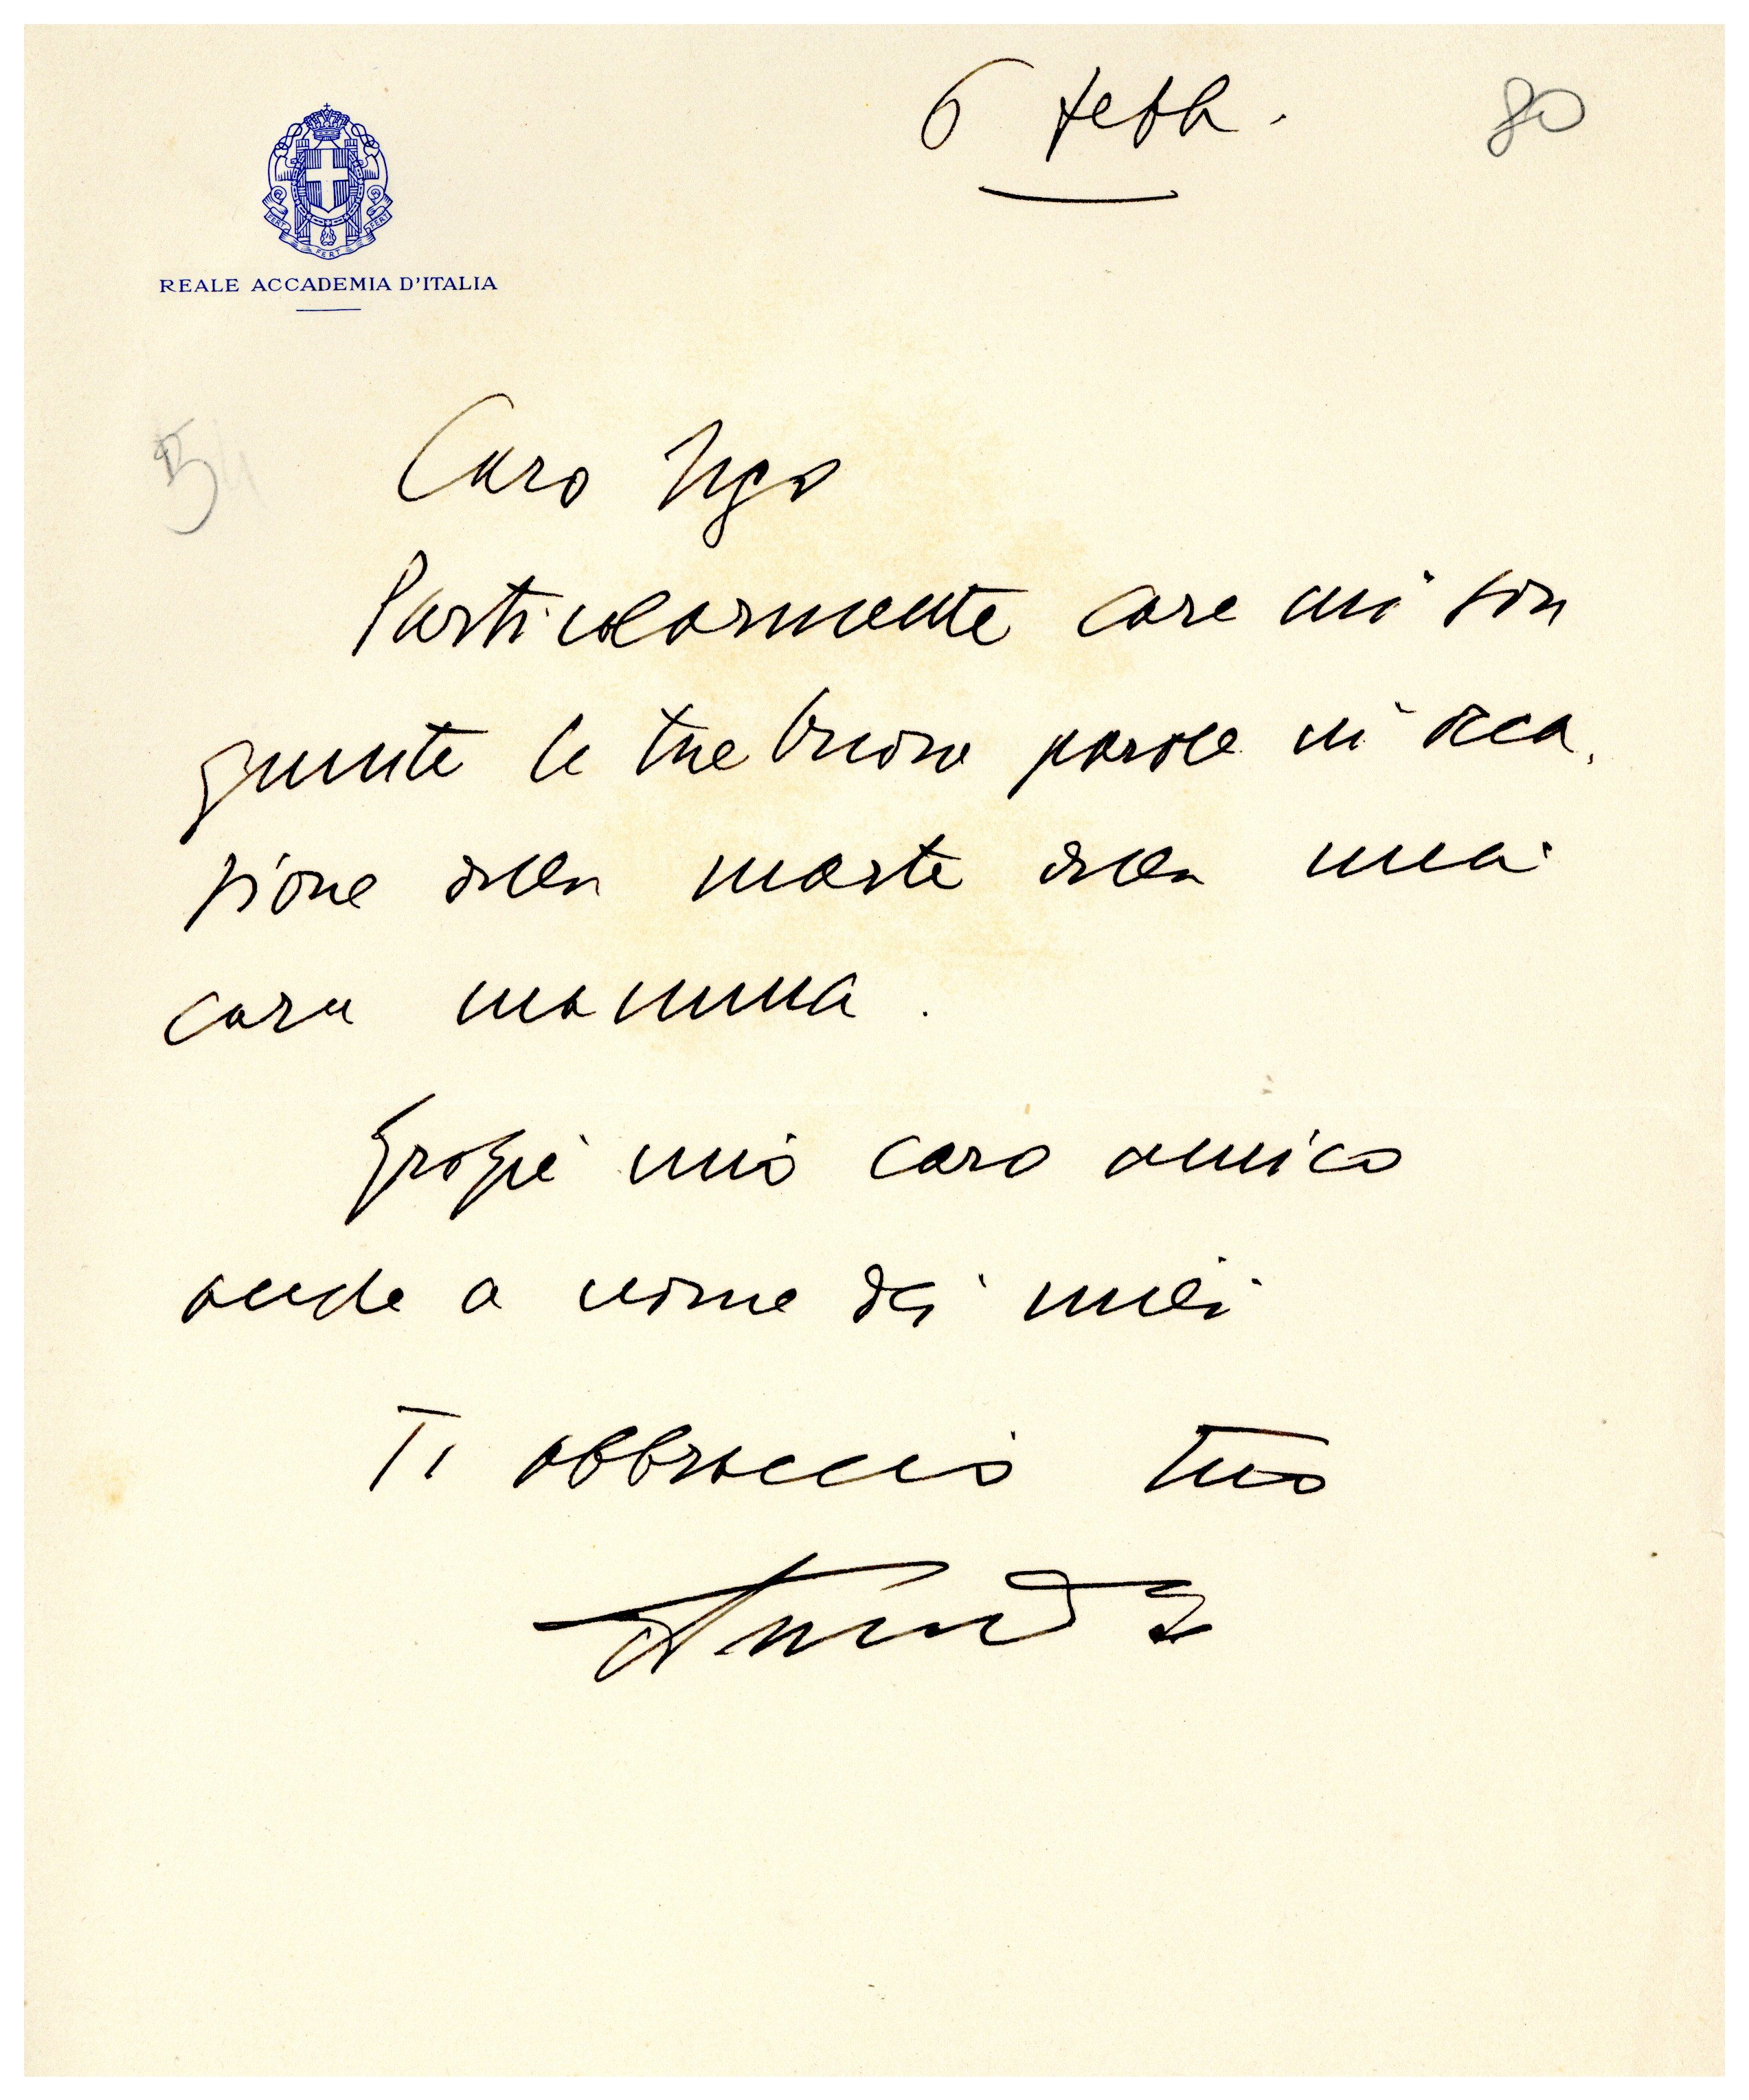 6 febb.
80
FERT FERT FERT
REALE ACCADEMIA D'ITALIA
Caro Ugo
Particolarmente care mi son
giunte le tue buone parole in occa-
sione della morte della mia
cara mamma.
Grazie mio caro amico
anche a nome dei miei
Ti abbraccio tuo